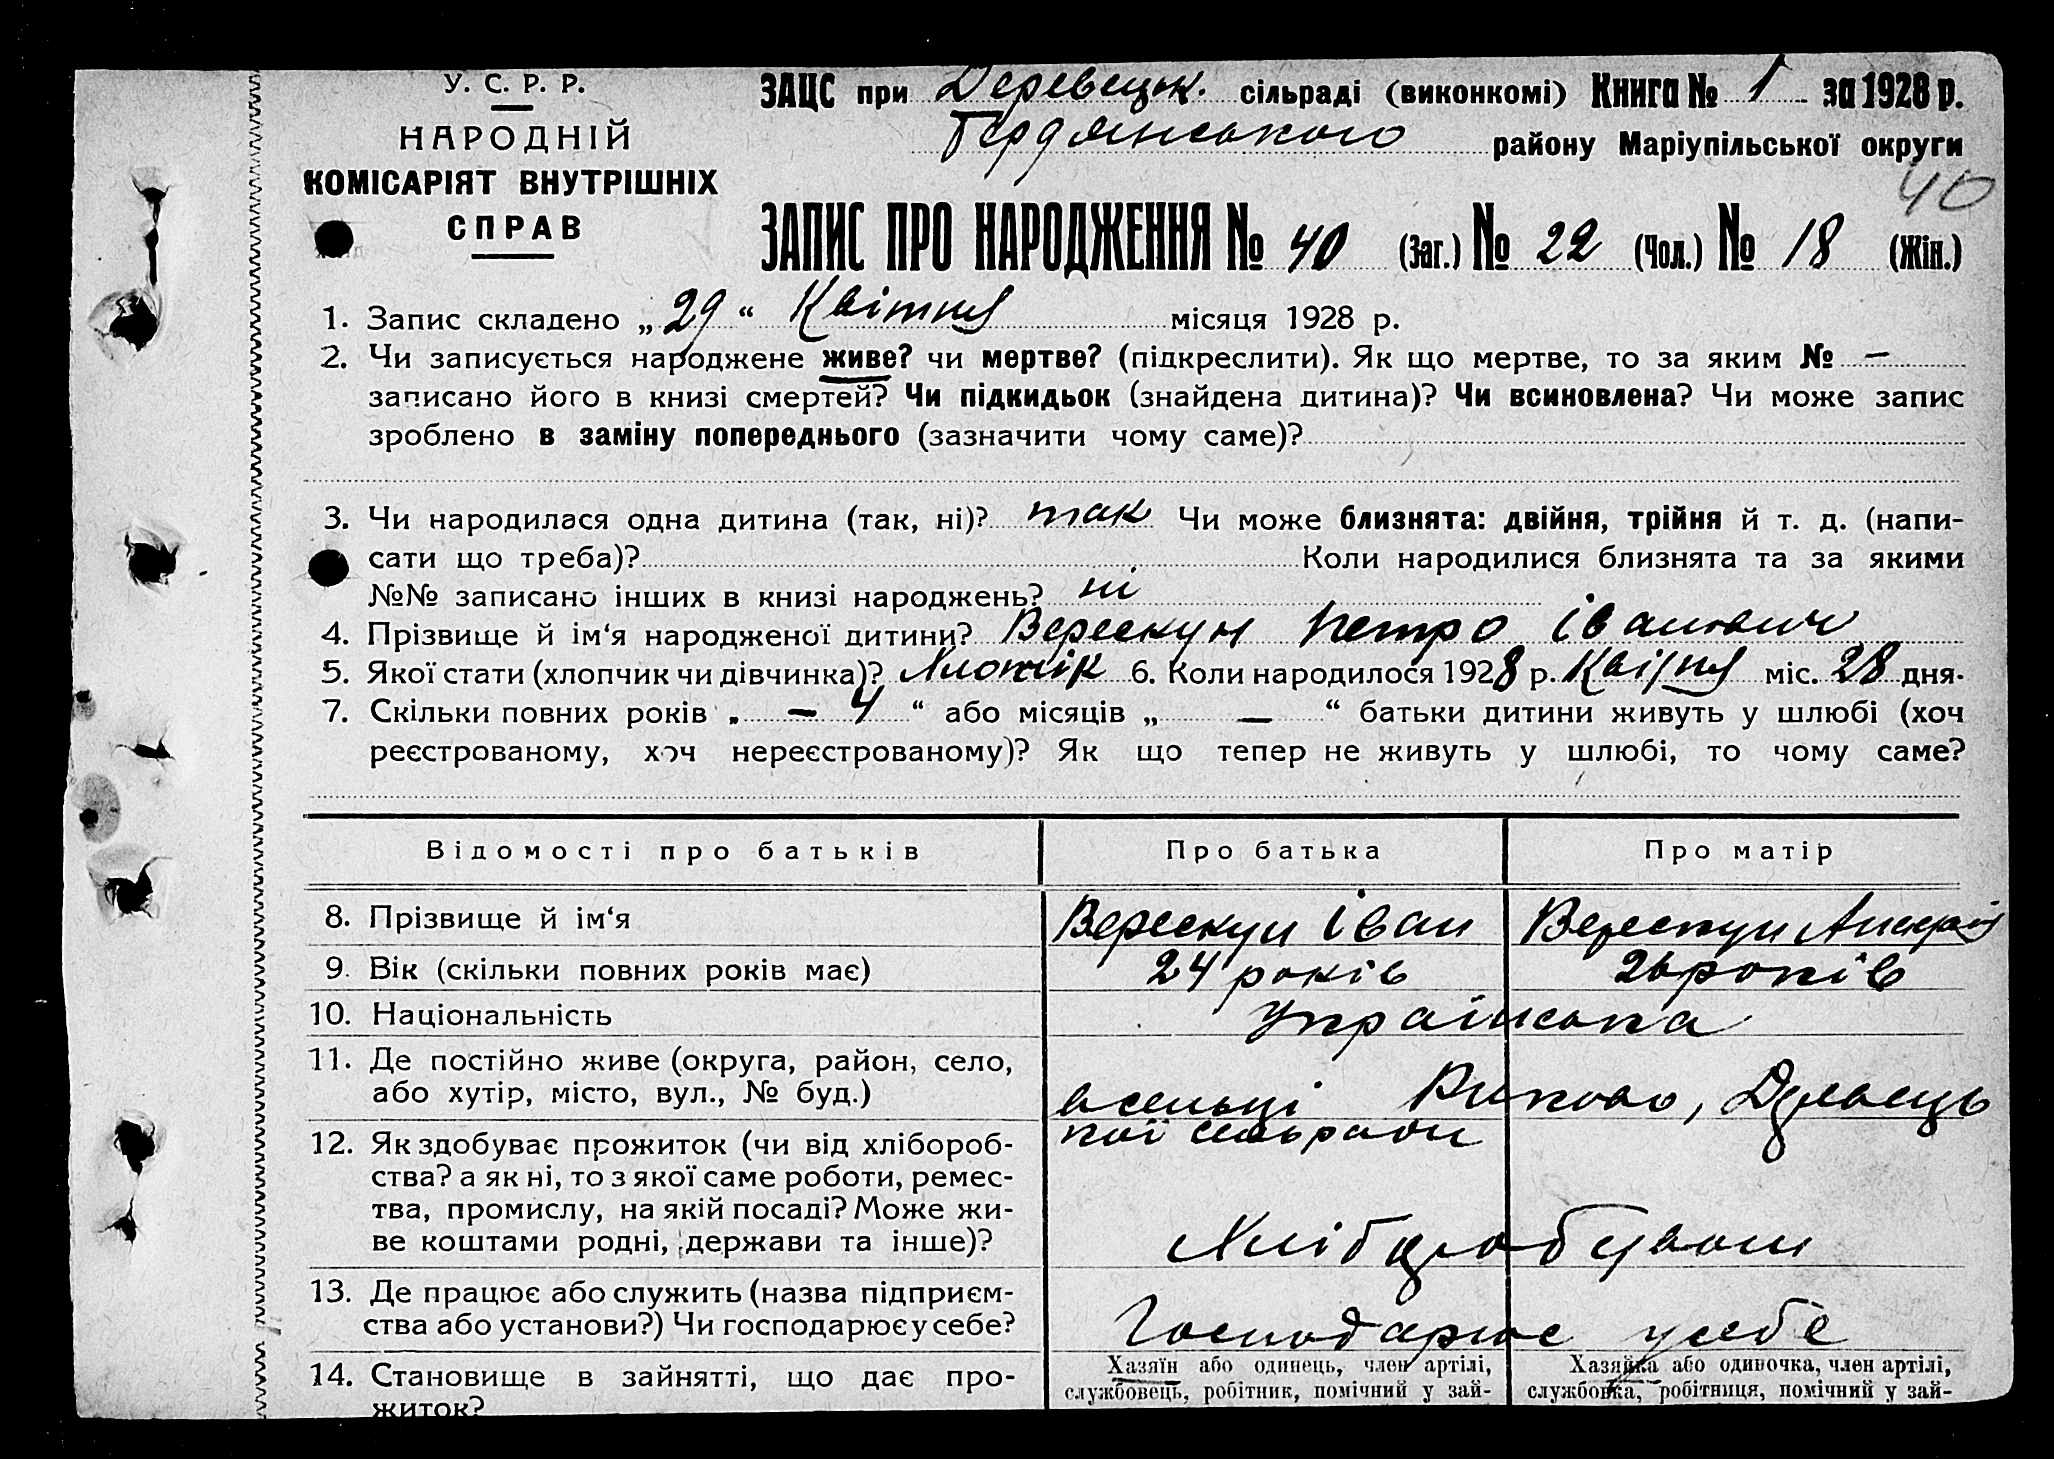 У. С. Р. Р.
НАРОДНІЙ
КОМІСАРІЯТ ВНУТРІШНІХ
СПРАВ
ЗАЦС при Деревецьк. сільраді (виконкомі) Книга № 1 за 1928 р.
Бердянського району Маріупільської округи
40
ЗАПИС ПРО НАРОДЖЕННЯ № 40 (Заг.) № 22 (Чол.) № 18 (Жін.)
1. Запис складено „ 29 “ Квітня місяця 1928 р.
2. Чи записується народжене живе? чи мертве? (підкреслити). Як що мертве, то за яким № —
записано його в книзі смертей? Чи підкидьок (знайдена дитина)? Чи всиновлена? Чи може запис
зроблено в заміну попереднього (зазначити чому саме)?
3. Чи народилася одна дитина (так, ні)? так Чи може близнята: двійня, трійня й т. д. (напи-
сати що треба)? Коли народилися близнята та за якими
№№ записано інших в книзі народжень? ні
4. Прізвище й ім‘я народженої дитини? Верескун Петро Іванович
5. Якої стати (хлопчик чи дівчинка)? 6. Коли народилося 1928 р. Квітня міс. 28 дня.
7. Скільки повних років „ — 4 “ або місяців „ — “ батьки дитини живуть у шлюбі (хоч
реєстрованому, хоч нереєстрованому)? Як що тепер не живуть у шлюбі, то чому саме?
Відомості про батьків Про батька Про матір
8. Прізвище й ім‘я Верескун Іван Верескун
9. Вік (скільки повних років має) 24 років 26 років
10. Національність Українська
11. Де постійно живе (округа, район, село,
або хутір, місто, вул., № буд.) в сельці
кої сельради
12. Як здобуває прожиток (чи від хлібороб-
ства? а як ні, то з якої саме роботи, ремес-
тва, промислу, на якій посаді? Може жи-
ве коштами родні, держави та інше)?
13. Де працює або служить (назва підприєм-
ства або установи?) Чи господарює у себе? Господарює у себе
14. Становище в зайнятті, що дає про-
житок?
Хазяїн або одинець, член артілі,
службовець, робітник, помічний у зай-
Хазяйка або одиночка, член артілі,
службовка, робітниця, помічний у зай-